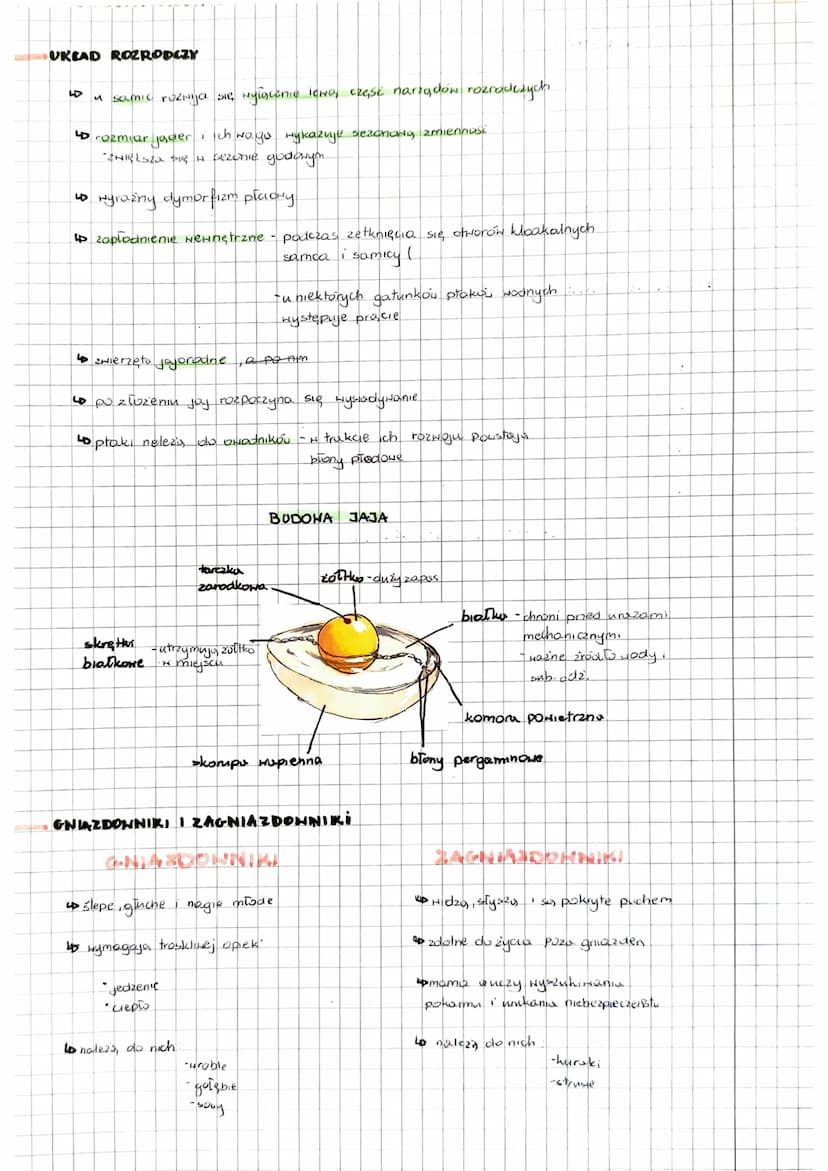 UKŁAD ROZRODCZY
↳ u samic rozwija się wyłącznie lewa część narządów rozrodczych
↳ rozmiar jąder i ich waga wykazuje sezonową zmienność
• zwiększa się w sezonie godowym
↳ wyraźny dymorfizm płciowy
↳ zapłodnienie wewnętrzne - podczas zetknięcia się otworów kloakalnych
samca i samicy (
- u niektórych gatunków ptaków wodnych
występuje prącie
↳ zwierzęta jajorodne, a po nim
↳ po złożeniu jaj rozpoczyna się wysiadywanie
↳ ptaki należą do owodników - w trakcie ich rozwoju powstają
błony płodowe
BUDOWA JAJA
tarczka
zarodkowa
żółtko - duży zapas
białko - chroni przed urazami
mechanicznymi
- ważne źródło wody i
sub. odż.
skrętki
białkowe
- utrzymują żółtko
w miejscu
komora powietrzna
skorupa wapienna
błony pergaminowe
GNIAZDOWNIKI I ZAGNIAZDOWNIKI
GNIAZDOWNIKI
↳ ślepe, głuche i nagie młode
↳ wymagają troskliwej opieki
• jedzenie
• ciepło
↳ należą do nich
- wróble
- gołębie
- sowy
ZAGNIAZDOWNIKI
↳ widzą, słyszą i są pokryte puchem
↳ zdolne do życia poza gniazdem
↳ mama uczy wyszukiwania
pokarmu i unikania niebezpieczeństw
↳ należą do nich
- kuraki
- strusie